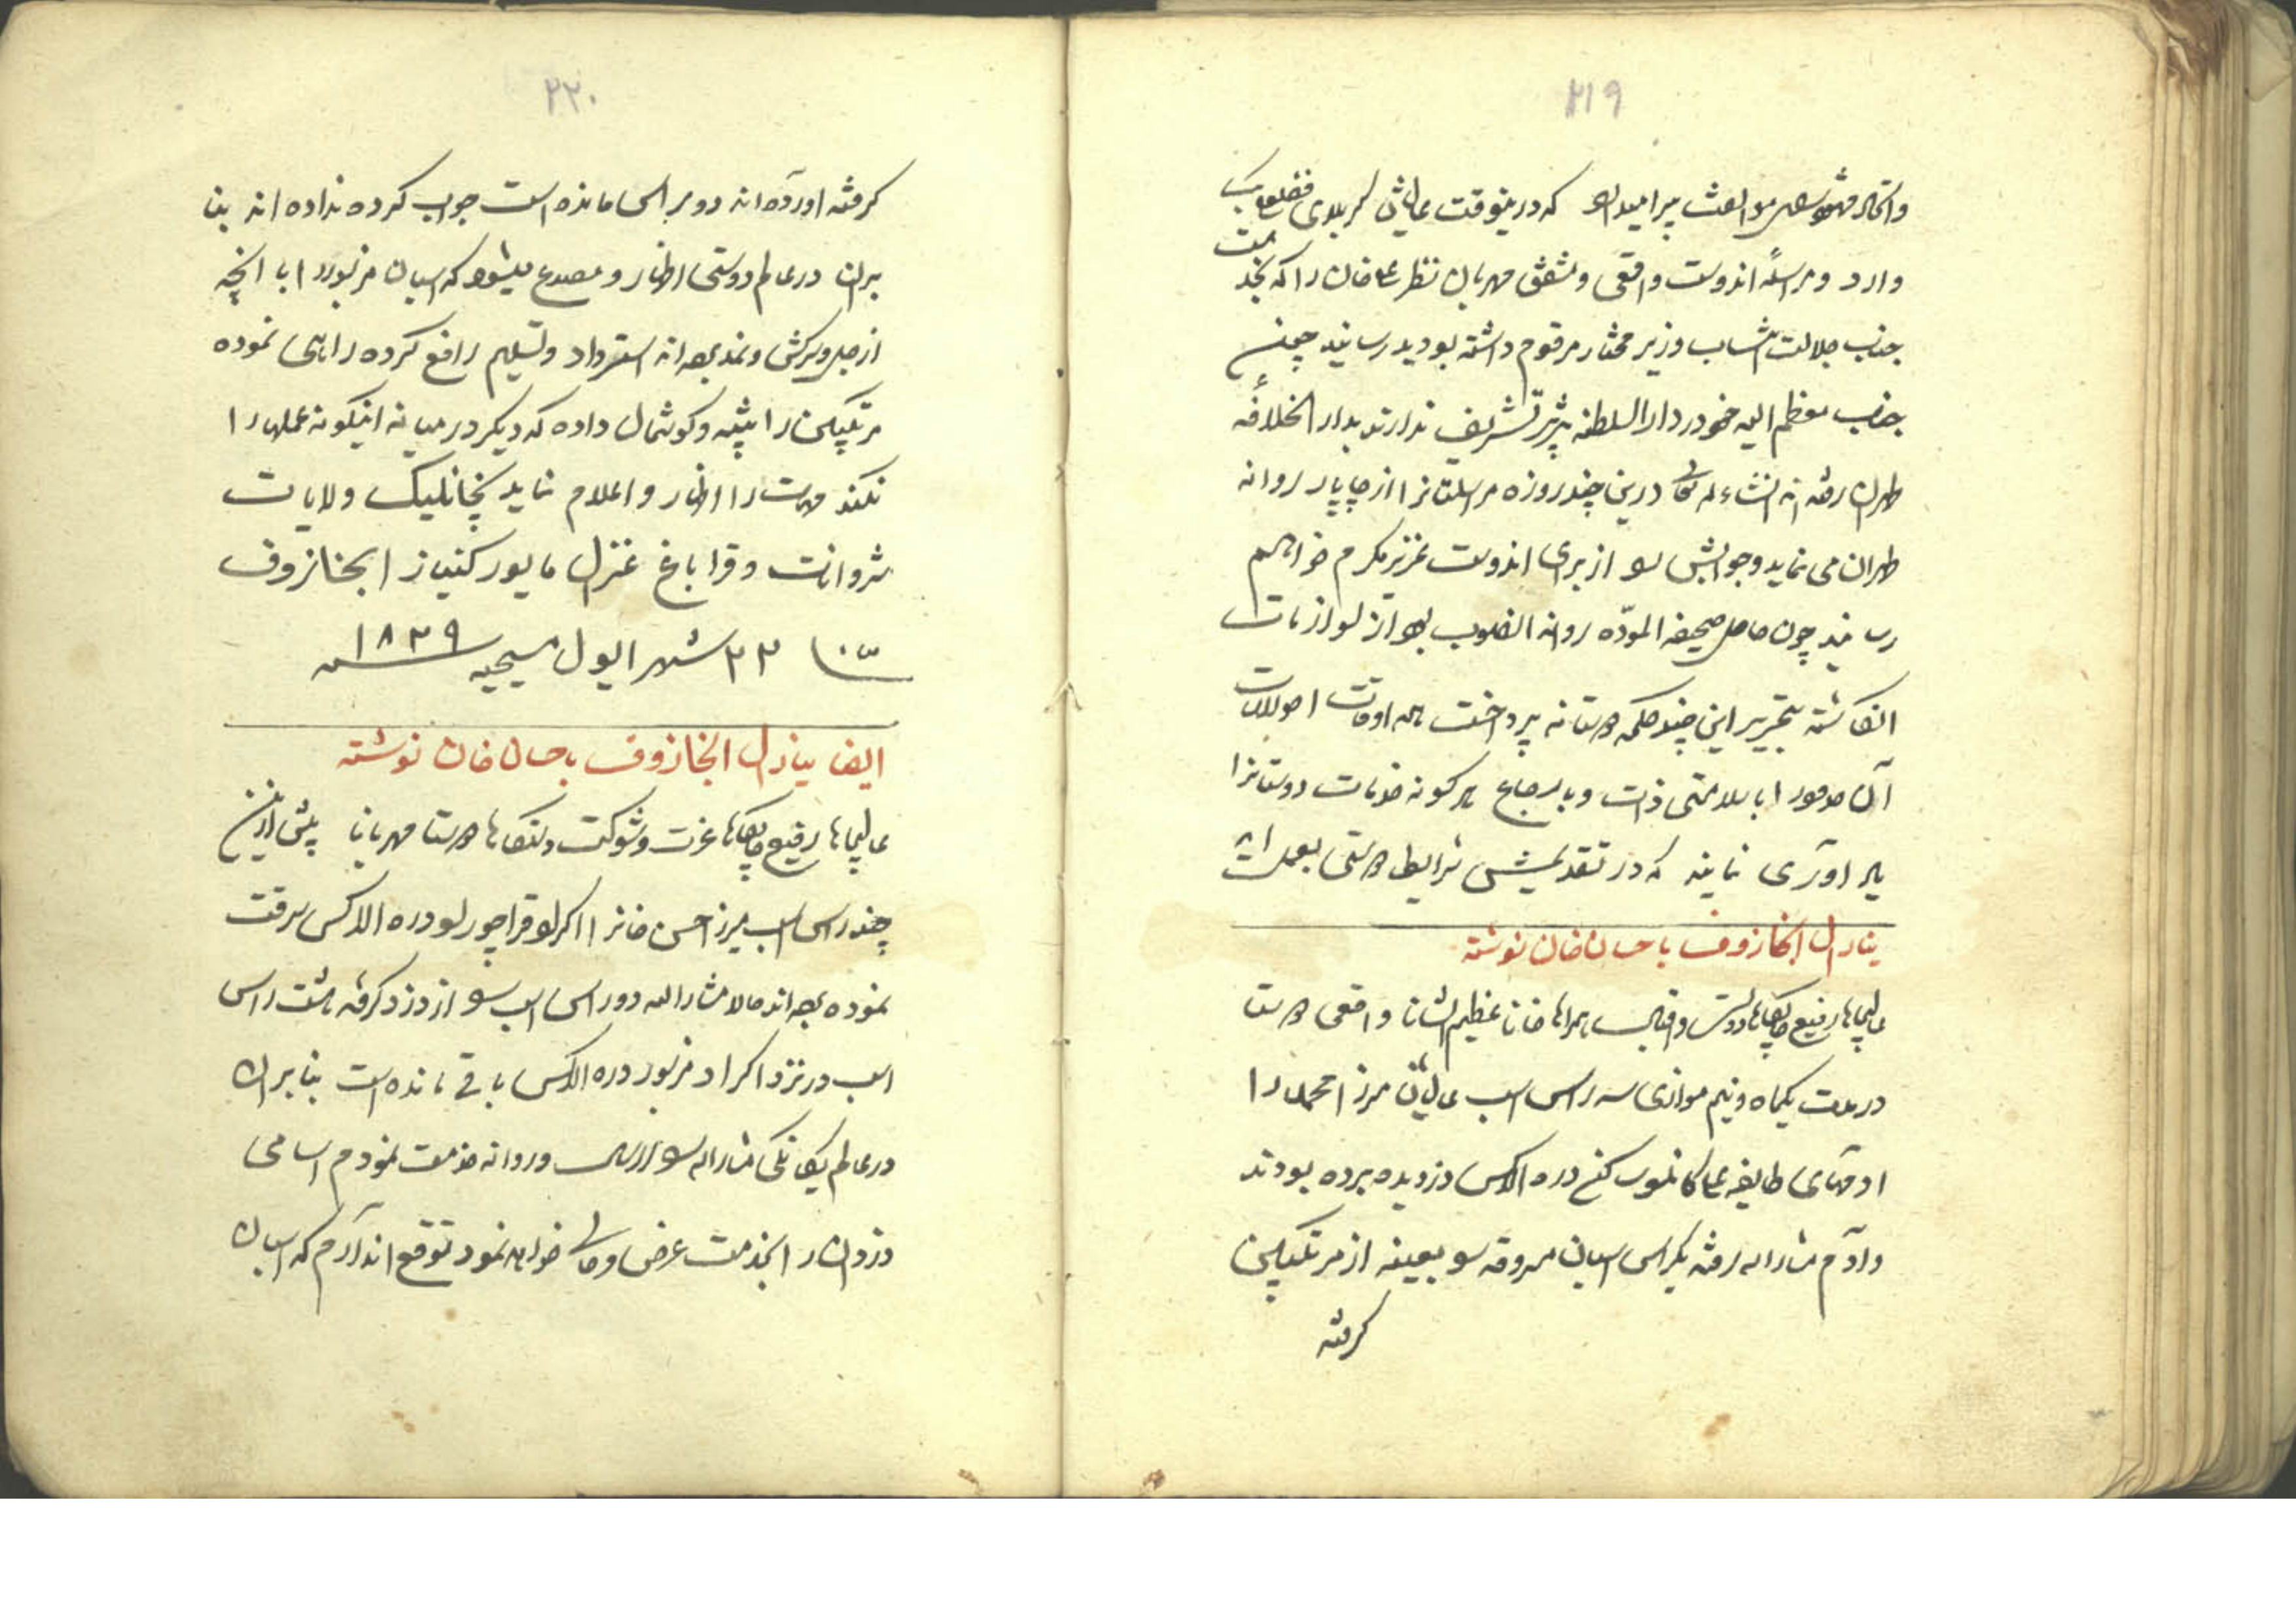 ۲۱۹
که درینوقت عالیشان کربلای فضلعلی بیک
وارد و مراسلهٔ اندوست واقعی و مشفق مهربان نظر علی خان را که بخدمت
جناب جلالت انتساب وزیر مختار مرقوم داشته بودید رسانید چون
جناب معظم الیه خود در دار السلطنه تبریز تشریف ندارند بدار الخلافهٔ
طهران رفته اند انشاء الله تعالی درین چند روزه مراسلتانرا از چاپار روانه
طهران می نماید و جوابش را از برای اندوست عزیز مکرم خواهم
رسانید چون حامل صحیفه المودّه روانه انصوب بود از لوازمات
انکاشته بتحریر این چند کلمه دوستانه پرداخت همه اوقات احوالات
آن را با سلامتی ذات و با ارجاع هر کونه خدمات دوستانرا
یاد اوری نمایند که در تقدیمش شرایط دوستی بعمل اید
ینارال ابخازوف با حسان خان نوشته
عالیجاها رفیع جایگاها دولت و اقبال همراها خانا عظیم الشانا واقعی دوستا
در مدت یکماه و نیم موازی سه راس اسب عالیشان میرزا محمد را
ادمهای طایفه علی کانلوی کنج دره الاکس دزدیده برده بودند
و ادم مشار الیه رفته یکراس اسبان مسروقه را بعینه از مرتکبین
کرفته
۲۲۰
کرفته اورده اند دو راس مانده است جواب کرده نداده اند بنا
بران در عالم دوستی اظهار و مصدع میشود که اسبان مزبور را با انچه
از جل و سرکش و نمد بوده اند استرداد و تسلیم رافع کرده راهی نموده
مرتکبین را تنبیه و کوشمال داده که دیکر در میانه اینکونه عملها را
نکنند مهمات را اظهار و اعلام نماید نچانلیک ولایات
شروانات و قراباغ غنرال مایور کنیاز ابخازوف
۲۳ شهر ایول مسیحیه سنه ۱۸۳۹
ایضا ینارال ابخازوف با حسان خان نوشته
عالیجاها رفیع جایگاها عزت و شوکت دستکاها دوستا مهربانا پیش ازین
چند راس اسب میرزا حسن خانرا اکراد قراچورلو دره الاکس سرقت
نموده بوده اند حالا مشار الیه دو راس اسب را از دزد کرفته هشت راس
اسب در نزد اکراد مزبور دره الاکس باقی مانده است بنابران
در عالم یکانکی مشار الیه را روانه خدمت نمودم اسامی
دزدان را بخدمت عرض و حالی خواهد نمود توقع اندارم که اسبان